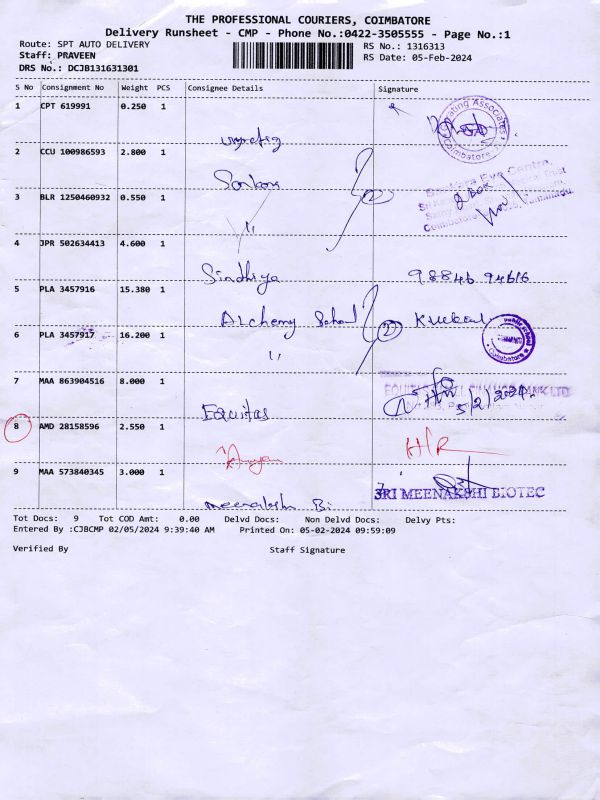 THE PROFESSIONAL COURIERS, COIMBATORE
Delivery Runsheet - CMP - Phone No.:0422-3505555 - Page No.:1
Route: SPT AUTO DELIVERY
RS No.: 1316313
Staff: PRAVEEN
RS Date: 05-Feb-2024
DRS No.: DCJB131631301
S No Consignment No Weight PCS Consignee Details Signature
1 CPT 619991 0.250 1
ating Associates
Coimbatore
2 CCU 100986593 2.800 1
Sankara Eye Centre,
3 BLR 1250460932 0.550 1
"
Coimbatore
4 JPR 502634413 4.600 1
Sindhiya 98846 94616
5 PLA 3457916 15.380 1
Alchemy School 2
Public School
Coimbatore
6 PLA 3457917 16.200 1
"
7 MAA 863904516 8.000 1
Equitas 5/2/2024
8 AMD 28158596 2.550 1
H/R
9 MAA 573840345 3.000 1
SRI MEENAKSHI BIOTEC
Meenakshi Bi
Tot Docs: 9 Tot COD Amt: 0.00 Delvd Docs: Non Delvd Docs: Delvy Pts:
Entered By :CJBCMP 02/05/2024 9:39:40 AM Printed On: 05-02-2024 09:59:09
Verified By Staff Signature